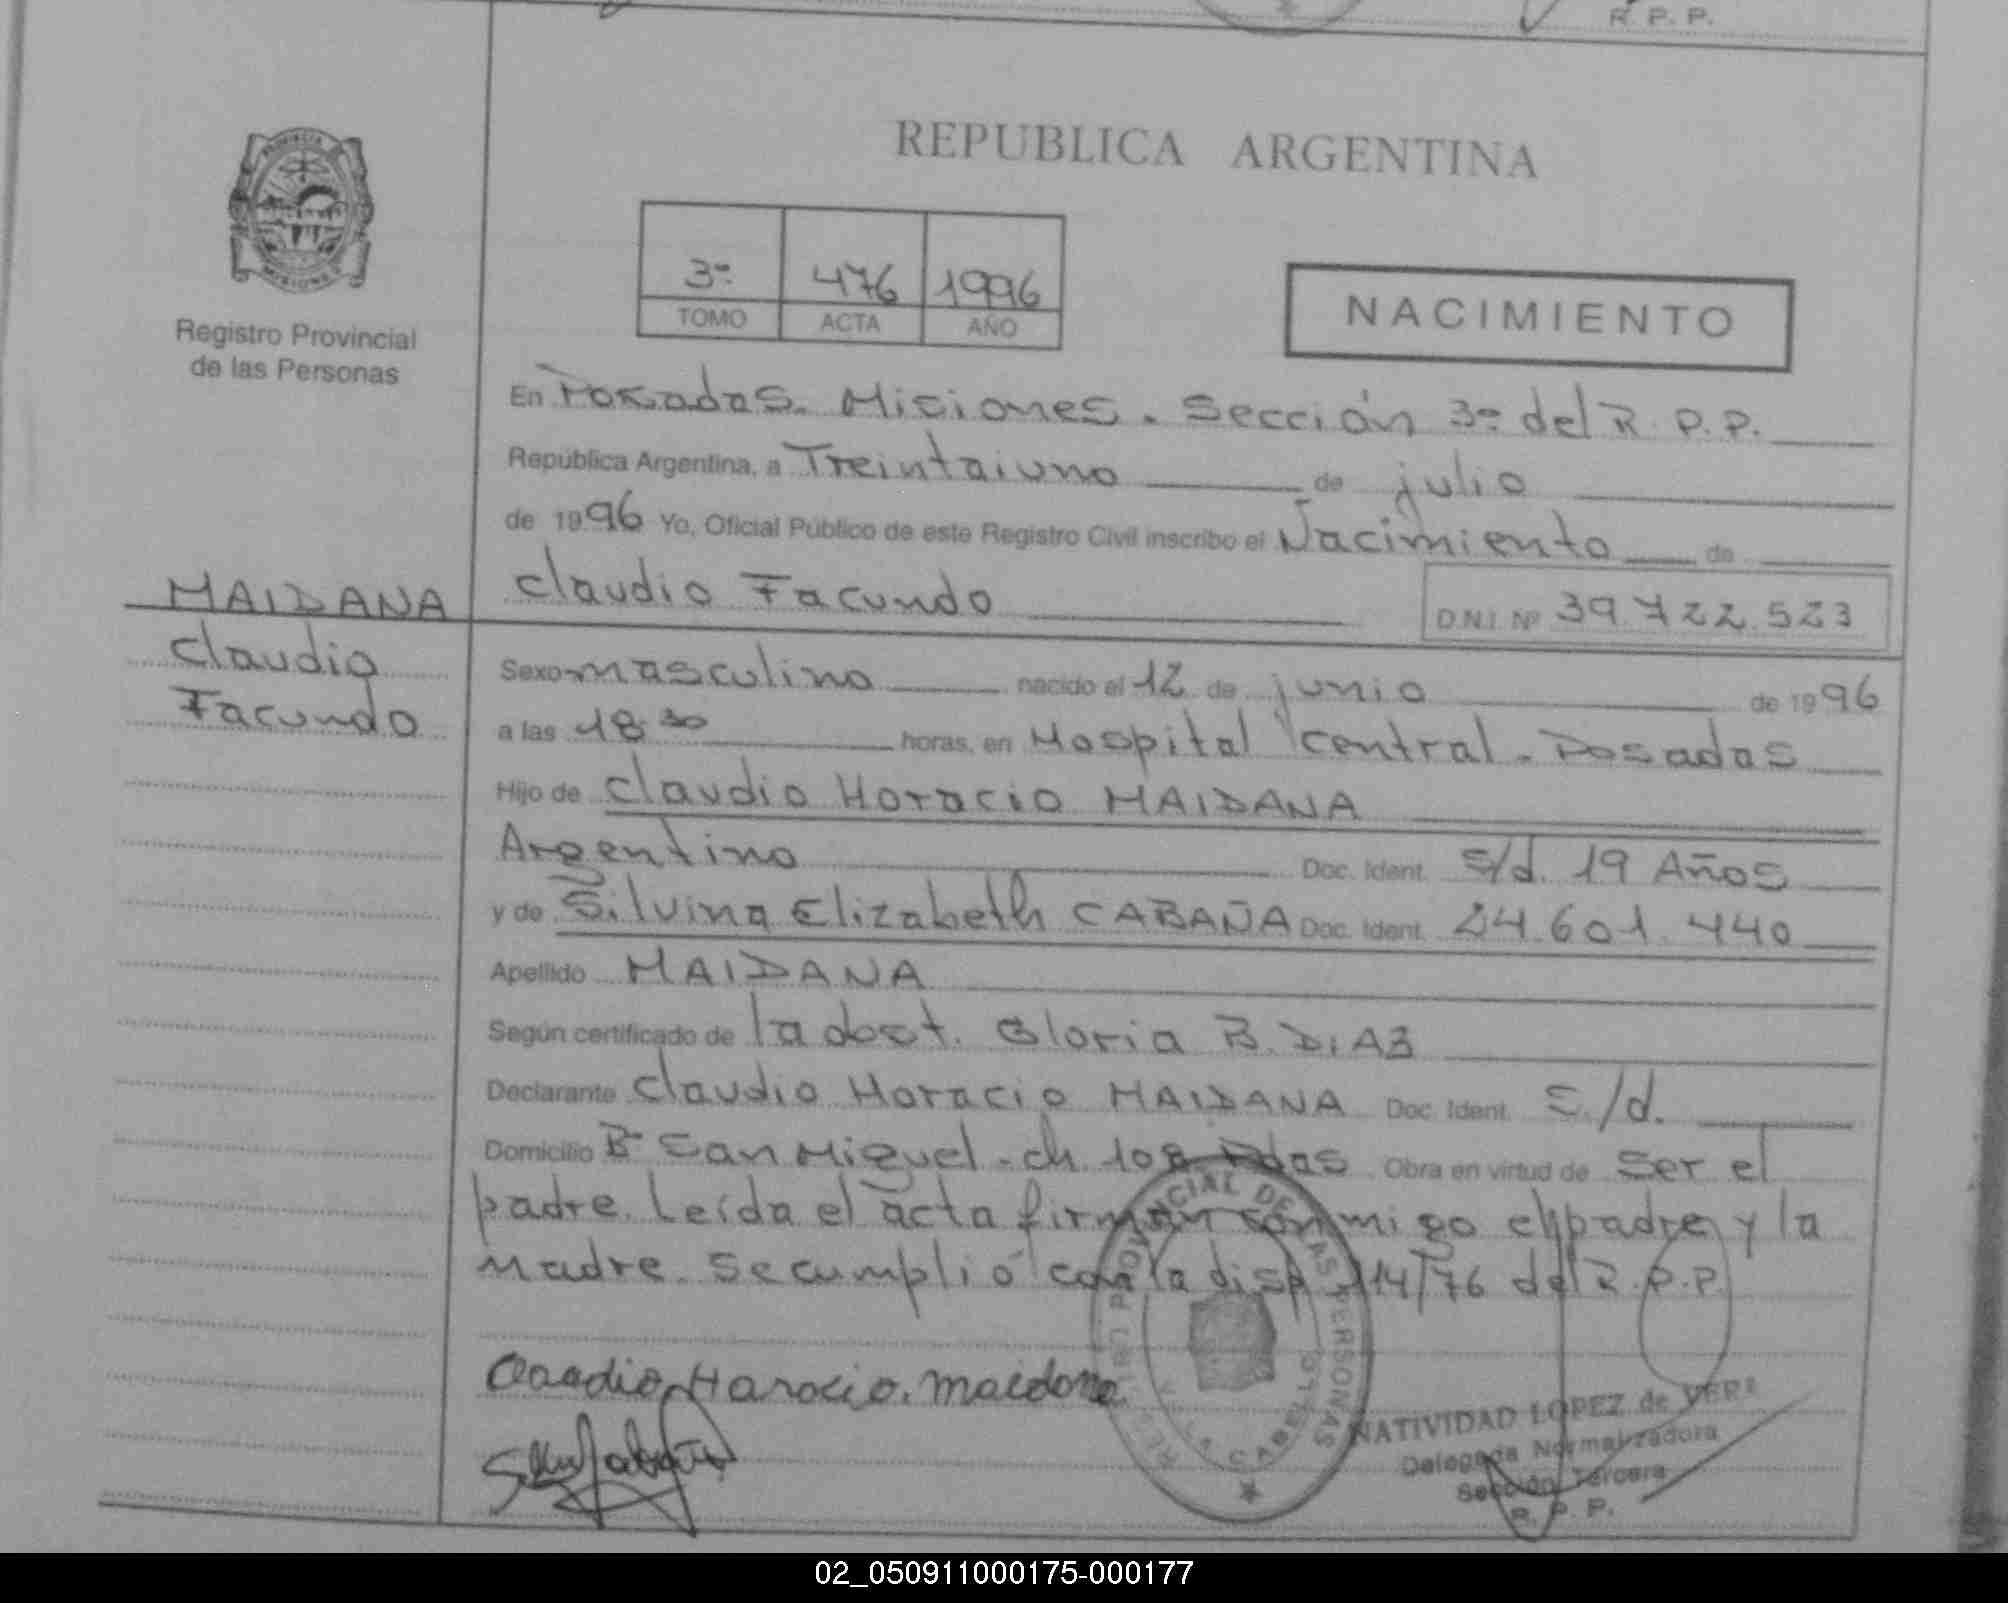 R. P. P.
REPUBLICA ARGENTINA
PROVINCIA
MISIONES
Registro Provincial
de las Personas
3º 476 1996
TOMO ACTA AÑO
NACIMIENTO
En Posadas. Misiones. Sección 3º del R. P. P.
República Argentina, a Treintaiuno de julio
de 1996 Yo, Oficial Público de este Registro Civil inscribo el Nacimiento de
MAIDANA
Claudio Facundo
D.N.I. Nº 39.722.523
Claudio
Facundo
Sexo masculino nacido el 12 de junio de 1996
a las 18:30 horas, en Hospital Central. Posadas
Hijo de Claudio Horacio MAIDANA
Argentino Doc. Ident. S/d. 19 Años
y de Silvina Elizabeth CABAÑA Doc. Ident. 24.601.440
Apellido MAIDANA
Según certificado de la doct. Gloria B. DIAZ
Declarante Claudio Horacio MAIDANA Doc. Ident. S./d.
Domicilio Bº San Miguel. ch. 108. Pdas. Obra en virtud de ser el
padre. Leída el acta firman conmigo el padre y la
madre. Se cumplió con la disp. 114/76 del R.P.P.
Claudio Horacio. maidana
REG. PROVINCIAL DE LAS PERSONAS
VILLA CABELLO
NATIVIDAD LOPEZ de VERA
Delegada Normalizadora
Sección Tercera
R. P. P.
02_050911000175-000177